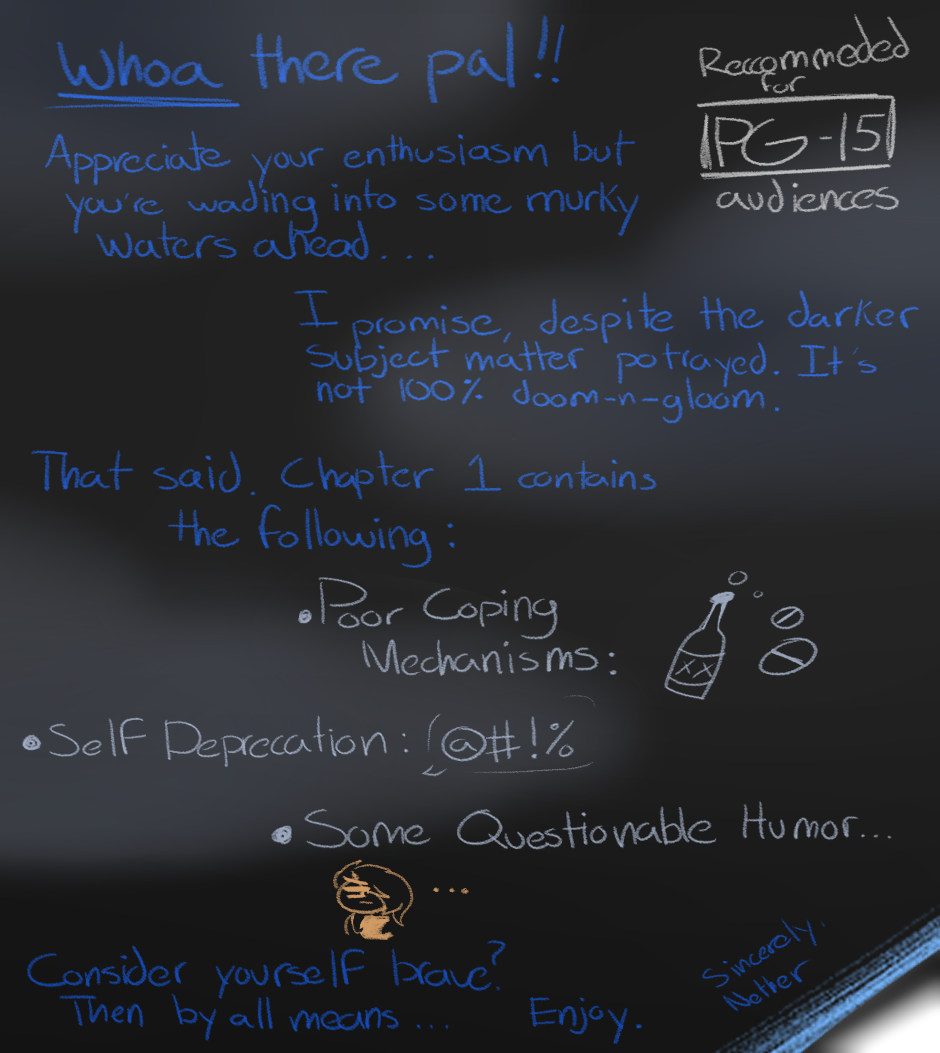 Whoa there pal!!
Reccommeded
for
PG-15
audiences
Appreciate your enthusiasm but
you're wading into some murky
waters ahead...
I promise, despite the darker
subject matter potrayed. It's
not 100% doom-n-gloom.
That said. Chapter 1 contains
the following:
•Poor Coping
Mechanisms:
XX
•Self Deprecation: @#!%
•Some Questionable Humor...
...
Consider yourself brave?
Then by all means... Enjoy.
Sincerely,
Nether